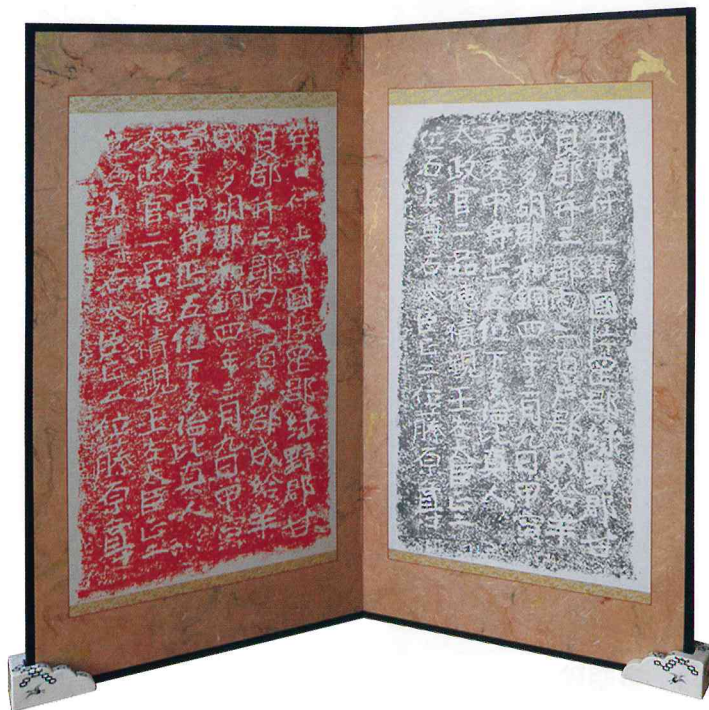 弁官符上野國片罡郡緑野郡甘
良郡并三郡内三百戸郡成給羊
成多胡郡和銅四年三月九日甲寅
宣左中弁正五位下多治比真人
太政官二品穂積親王左太臣正二
位石上尊右太臣正二位藤原尊
弁官符上野國片罡郡緑野郡甘
良郡并三郡内三百戸郡成給羊
成多胡郡和銅四年三月九日甲寅
宣左中弁正五位下多治比真人
太政官二品穂積親王左太臣正二
位石上尊右太臣正二位藤原尊